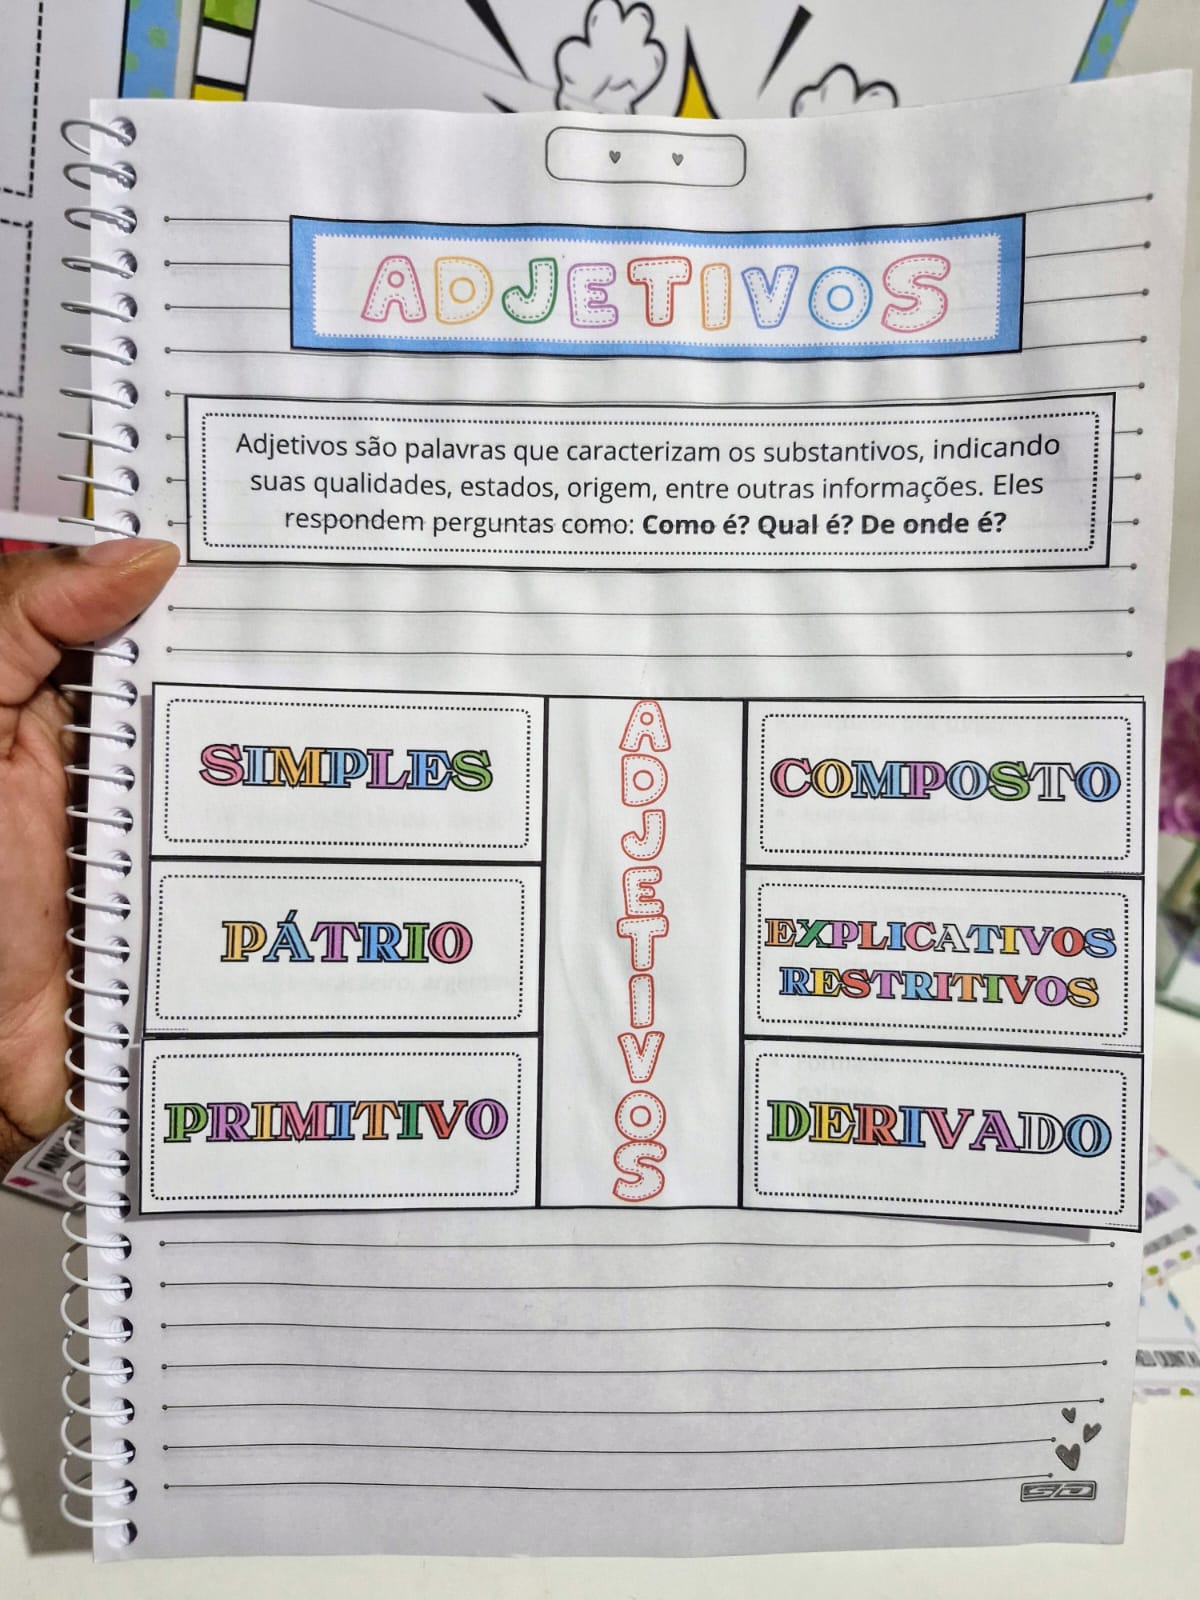 ADJETIVOS
Adjetivos são palavras que caracterizam os substantivos, indicando
suas qualidades, estados, origem, entre outras informações. Eles
respondem perguntas como: Como é? Qual é? De onde é?
SIMPLES
PÁTRIO
PRIMITIVO
ADJETIVOS
COMPOSTO
EXPLICATIVOS
RESTRITIVOS
DERIVADO
SD